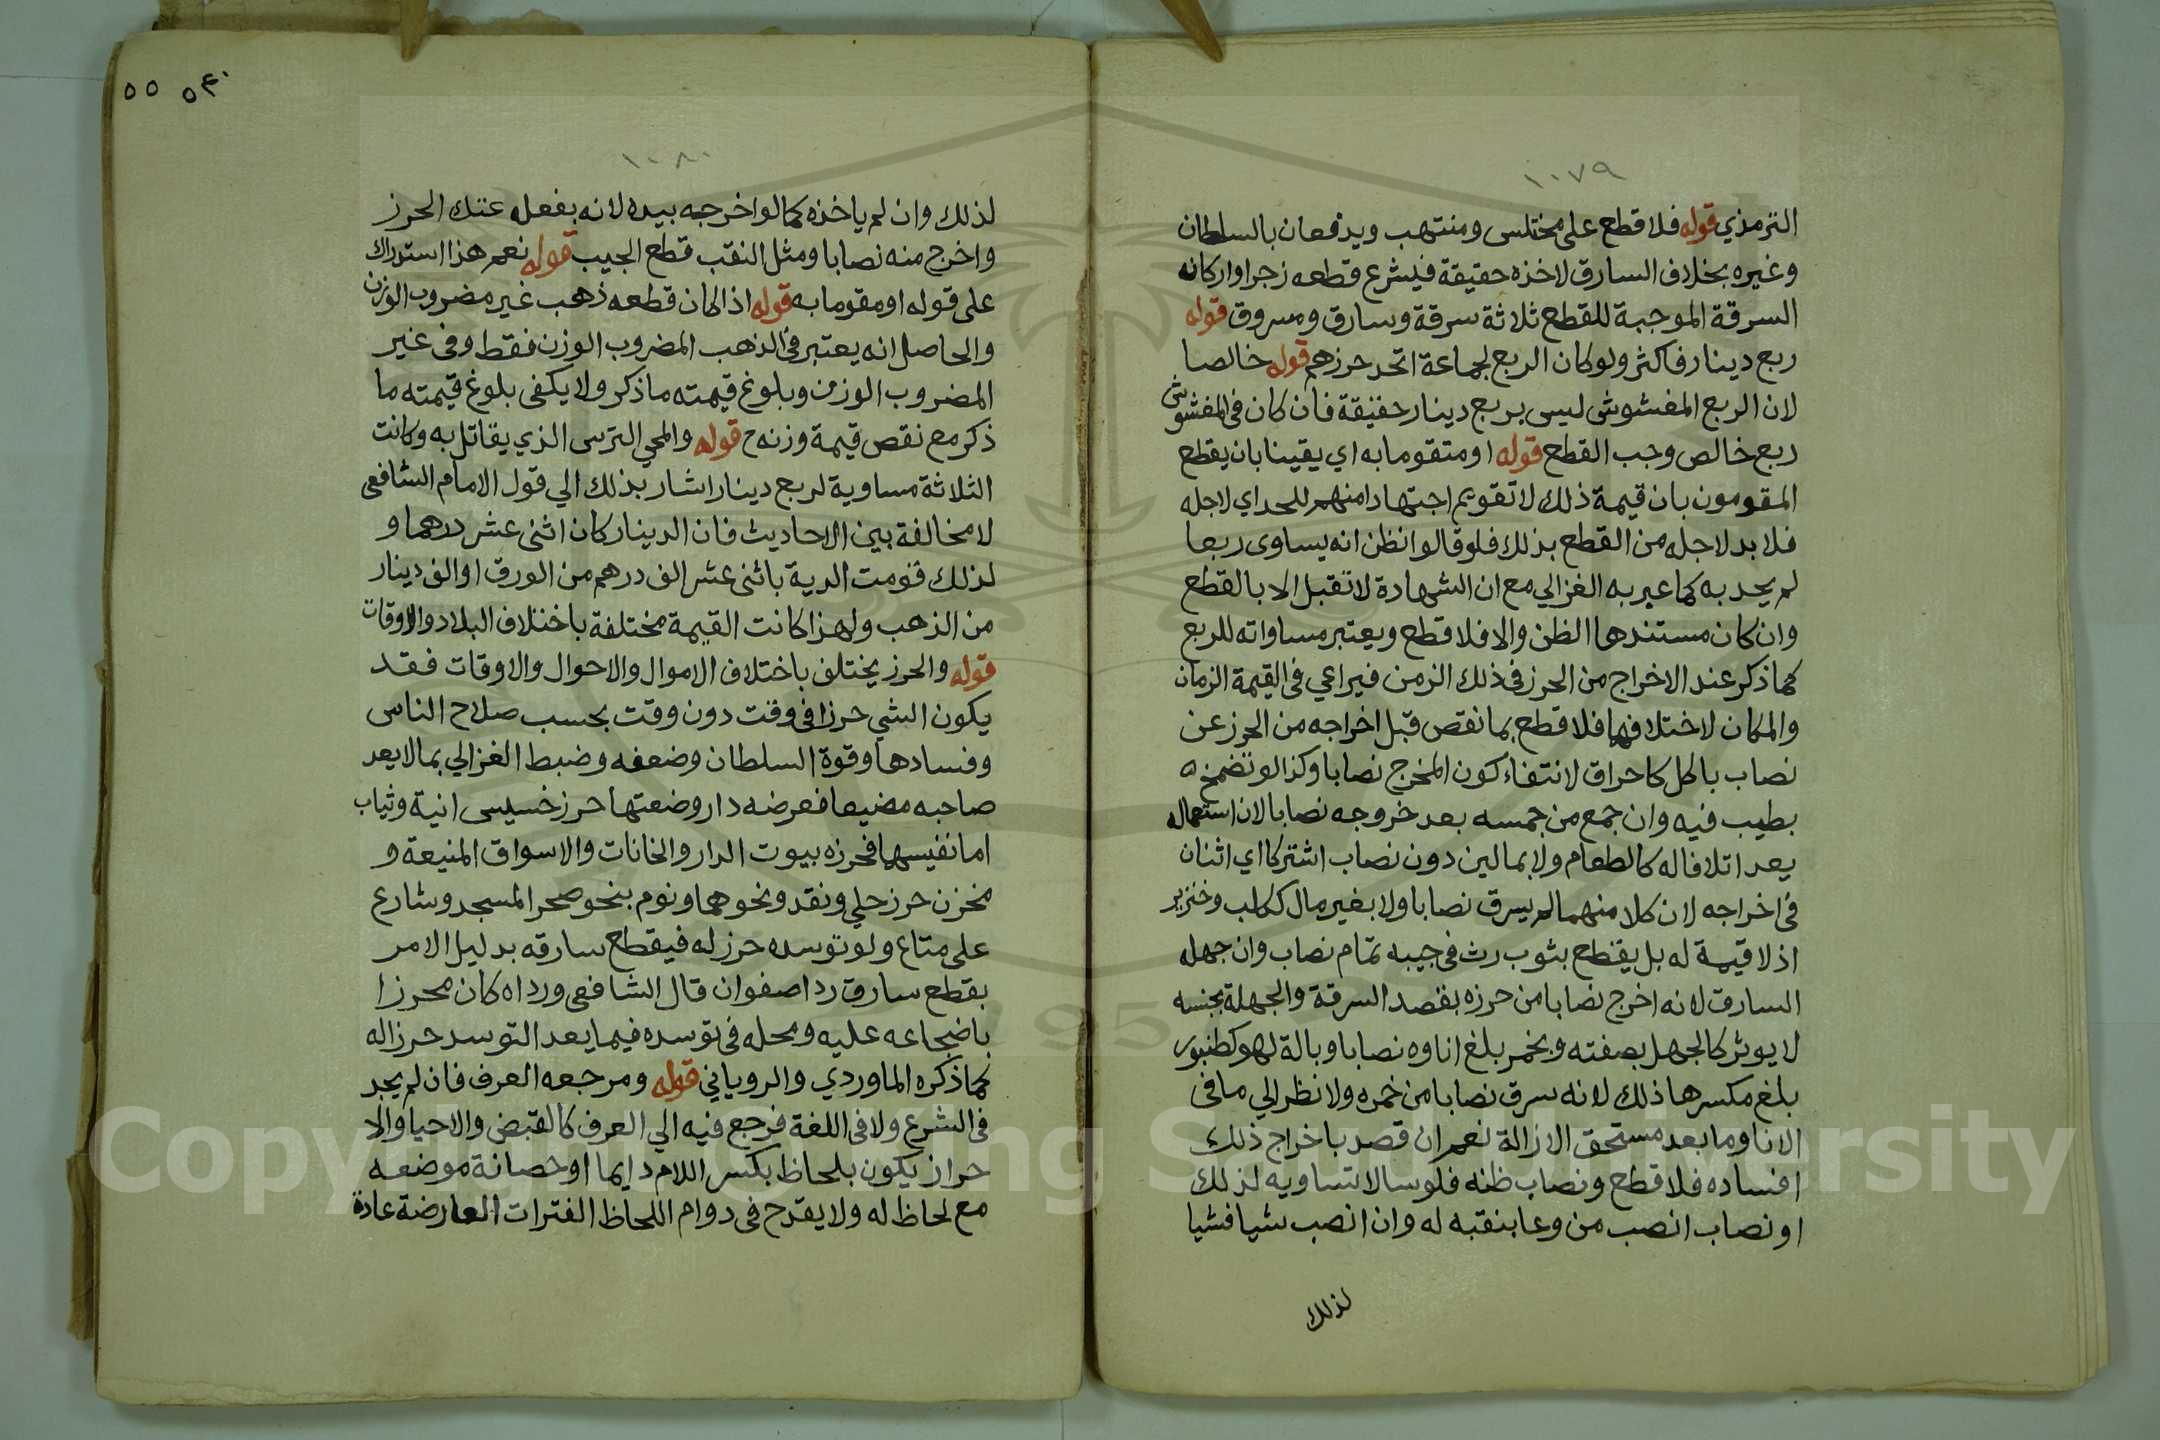 ١٠٧٩
الترمذي قوله فلا قطع على مختلس ومنتهب ويدفعان بالسلطان
وغيره بخلاف السارق لاخذه حقيقة فيشرع قطعه زجرا واركانه
السرقة الموجبة للقطع ثلاثة سرقة وسارق ومسروق قوله
ربع دينار فاكثر ولو كان الربع لجماعة اتحد حرزهم قوله خالصا
لان الربع المغشوش ليس بربع دينار حقيقة فان كان في المغشوش
ربع خالص وجب القطع قوله او متقوما به اي يقينا بان يقطع
المقومون بان قيمة ذلك لا تقويم اجتهادا منهم للحد اي لاجله
فلا بد لاجله من القطع بذلك فلو قالوا نظن انه يساوى ربعا
لم يحد به كما عبر به الغزالي مع ان الشهادة لا تقبل الا بالقطع
وان كان مستندها الظن والا فلا قطع ويعتبر مساواته للربع
كما ذكر عند الاخراج من الحرز في ذلك الزمن فيراعي في القيمة الزمان
والمكان لاختلافهما فلا قطع بما نقص قبل اخراجه من الحرز عن
نصاب باكل كاحراق لانتفاء كون المخرج نصابا وكذا لو تضمخ
بطيب فيه وان جمع من جمسه بعد خروجه نصابا لان استعماله
يعد اتلافا له كالطعام ولا بمالين دون نصاب اشتركا اي اثنان
في اخراجه لان كلا منهما لم يسرق نصابا ولا بغير مال ككلب وخنزير
اذ لا قيمة له بل يقطع بثوب رث في جيبه تمام نصاب وان جهله
السارق لانه اخرج نصابا من حرزه بقصد السرقة والجهلة بجنسه
لا يوثر كالجهل بصفته وبخمر بلغ اناوه نصابا وبالة لهو كطنبور
بلغ مكسرها ذلك لانه سرق نصابا من خمره ولا نظر الي ما في
الانا وما بعد مستحق الازالة نعم ان قصد باخراج ذلك
افساده فلا قطع ونصاب ظنه فلوسا لا تساويه لذلك
او نصاب انصب من وعا بنقبه له وان انصب شيا فشيا
لذلك
٥٤٠ ٥٥
١٠٨٠
لذلك وان لم ياخذه كما لو اخرجه بيده لانه بفعله عتك الحرز
واخرج منه نصابا ومثل النقب قطع الجيب قوله نعم هذا استدراك
على قوله او مقوما به قوله اذا كان قطعه ذهب غير مضروب الوزن
والحاصل انه يعتبر في الذهب المضروب الوزن فقط وفي غير
المضروب الوزن وبلوغ قيمته ما ذكر ولا يكفى بلوغ قيمته ما
ذكر مع نقص قيمة وزنه ح قوله والمجي الترس الذي يقاتل به وكانت
الثلاثة مساوية لربع دينار اشار بذلك الي قول الامام الشافعي
لا مخالفة بين الاحاديث فان الدينار كان اثنى عشر درهما و
لذلك قومت الدية باثنى عشر الف درهم من الورق او الف دينار
من الذهب ولهذا كانت القيمة مختلفة باختلاف البلاد والاوقات
قوله والحرز يختلف باختلاف الاموال والاحوال والاوقات فقد
يكون الشي حرزا في وقت دون وقت بحسب صلاح الناس
وفسادها وقوة السلطان وضعفه وضبط الغزالي بما لا يعد
صاحبه مضيعا فعرضه دار وضعتها حرز خسيس انية وثياب
اما نفيسها فحرزه بيوت الدار والخانات والاسواق المنيعة و
مخزن حرز حلي ونقد ونحوهما ونوم بنحو صحر المسجد وشارع
على متاع ولو توسده حرز له فيقطع سارقه بدليل الامر
بقطع سارق ردا صفوان قال الشافعي ورداه كان محرزا
باضجاعه عليه ومحله في توسده فيما يعد التوسد حرزا له
كما ذكره الماوردي والروياني قوله ومرجعه العرف فان لم يجد
في الشرع ولا في اللغة فرجع فيه الي العرف كالقبض والاحيا والا
حراز يكون بلحاظ بكسر اللام دايما او حصانة موضعه
مع لحاظ له ولا يقدح في دوام اللحاظ الفترات العارضة عادة
Copyright © King Saud University
195